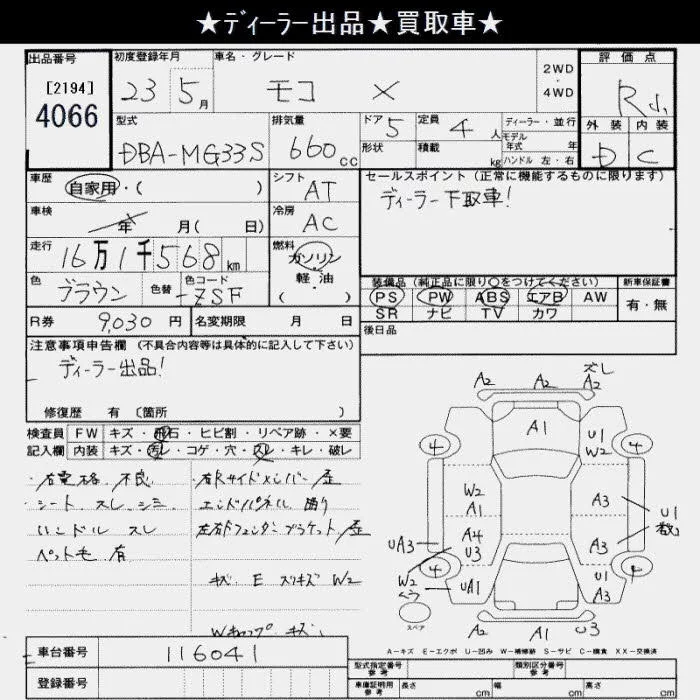 ★ディーラー出品★買取車★
出品番号
[2194]
4066
初度登録年月
23 5月
車名・グレード
モコ X
2WD
・
4WD
評価点
R
外装 内装
D C
型式
DBA-MG33S
排気量
660cc
ドア 5
形状
定員 4人
積載 kg
ディーラー・並行
モデル年式 年
ハンドル 左・右
車歴
自家用・( )
シフト
AT
セールスポイント(正常に機能するものに限ります)
ディーラー下取車!
車検
年 月( 日)
冷房
AC
走行
16万1千568km
燃料
ガソリン
・
軽油
( )
色
ブラウン
色替
色コード
ZSF
装備品(純正品に限り○をつけてください)
PS PW ABS エアB AW
SR ナビ TV カワ
新車保証書
有・無
R券 9,030円
名変期限 月 日
後日品
注意事項申告欄(不具合内容等は具体的に記入して下さい)
ディーラー出品!
修復歴 有〔箇所 〕
検査員記入欄
FW キズ・飛石・ヒビ割・リペア跡・×要
内装 キズ・汚レ・コゲ・穴・スレ・キレ・破レ
・右電格不良
・シート、スレ、シミ
ハンドル スレ
ペット毛 有
右Rサイドメンバー歪
エンドパネル 曲り
左右Fフェンダーブラケット歪
キズ E スリキズ W2
Wキャップ キズ
A2 A2 A2 ズレ
4 A1 U1 W2 4
W2 A1 A3 U1 数
UA3 A4 U3 A3
4 W2 UA1 U1 A3
スペア
A2 A1 U3
A-キズ E-エクボ U-凹み W-補修跡 S-サビ C-腐食 XX-交換済
車台番号 116041
登録番号
型式指定番号 参考
類別区分番号 参考
車庫証明用 参考
長さ cm 幅 cm 高さ cm